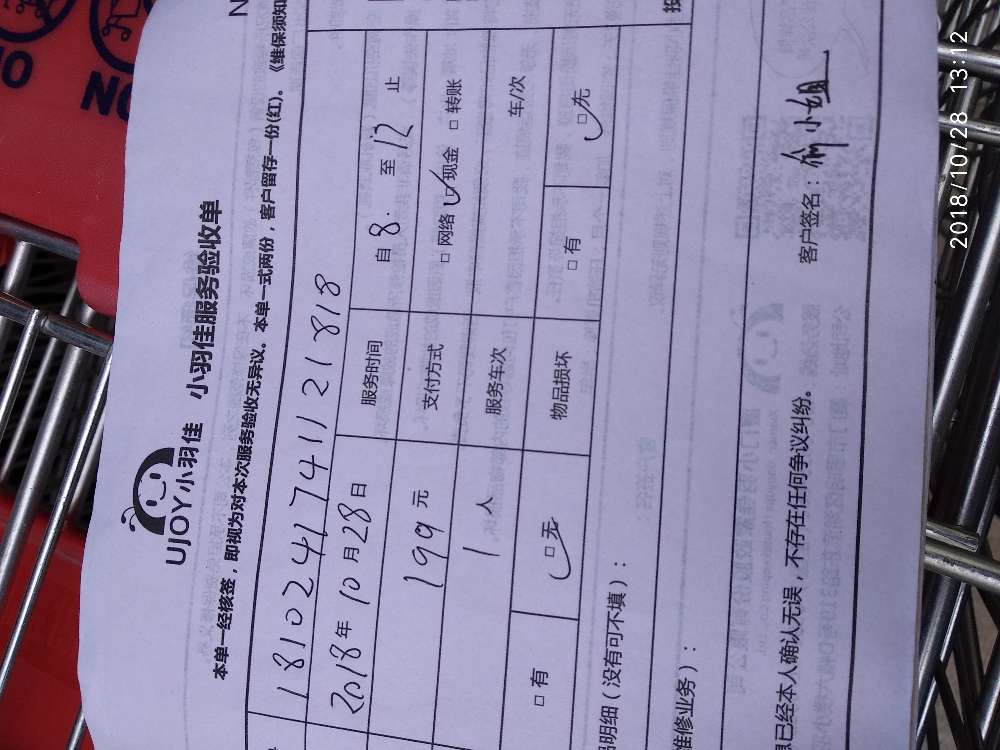 NO
UJOY小羽佳 小羽佳服务验收单
本单一经核签，即视为对本次服务验收无异议。本单一式两份，客户留存一份(红)。《维保须知
181024174112181 8
2018年10月28日 服务时间 自8. 至12 止
199元 支付方式 □网络 ☑现金 □转账
1 人 服务车次 车/次
□有 ☑无 物品损坏 □有 ☑无
明细（没有可不填）：
维修业务）：
息已经本人确认无误，不存在任何争议纠纷。 客户签名：俞小姐
2018/10/28 13:12